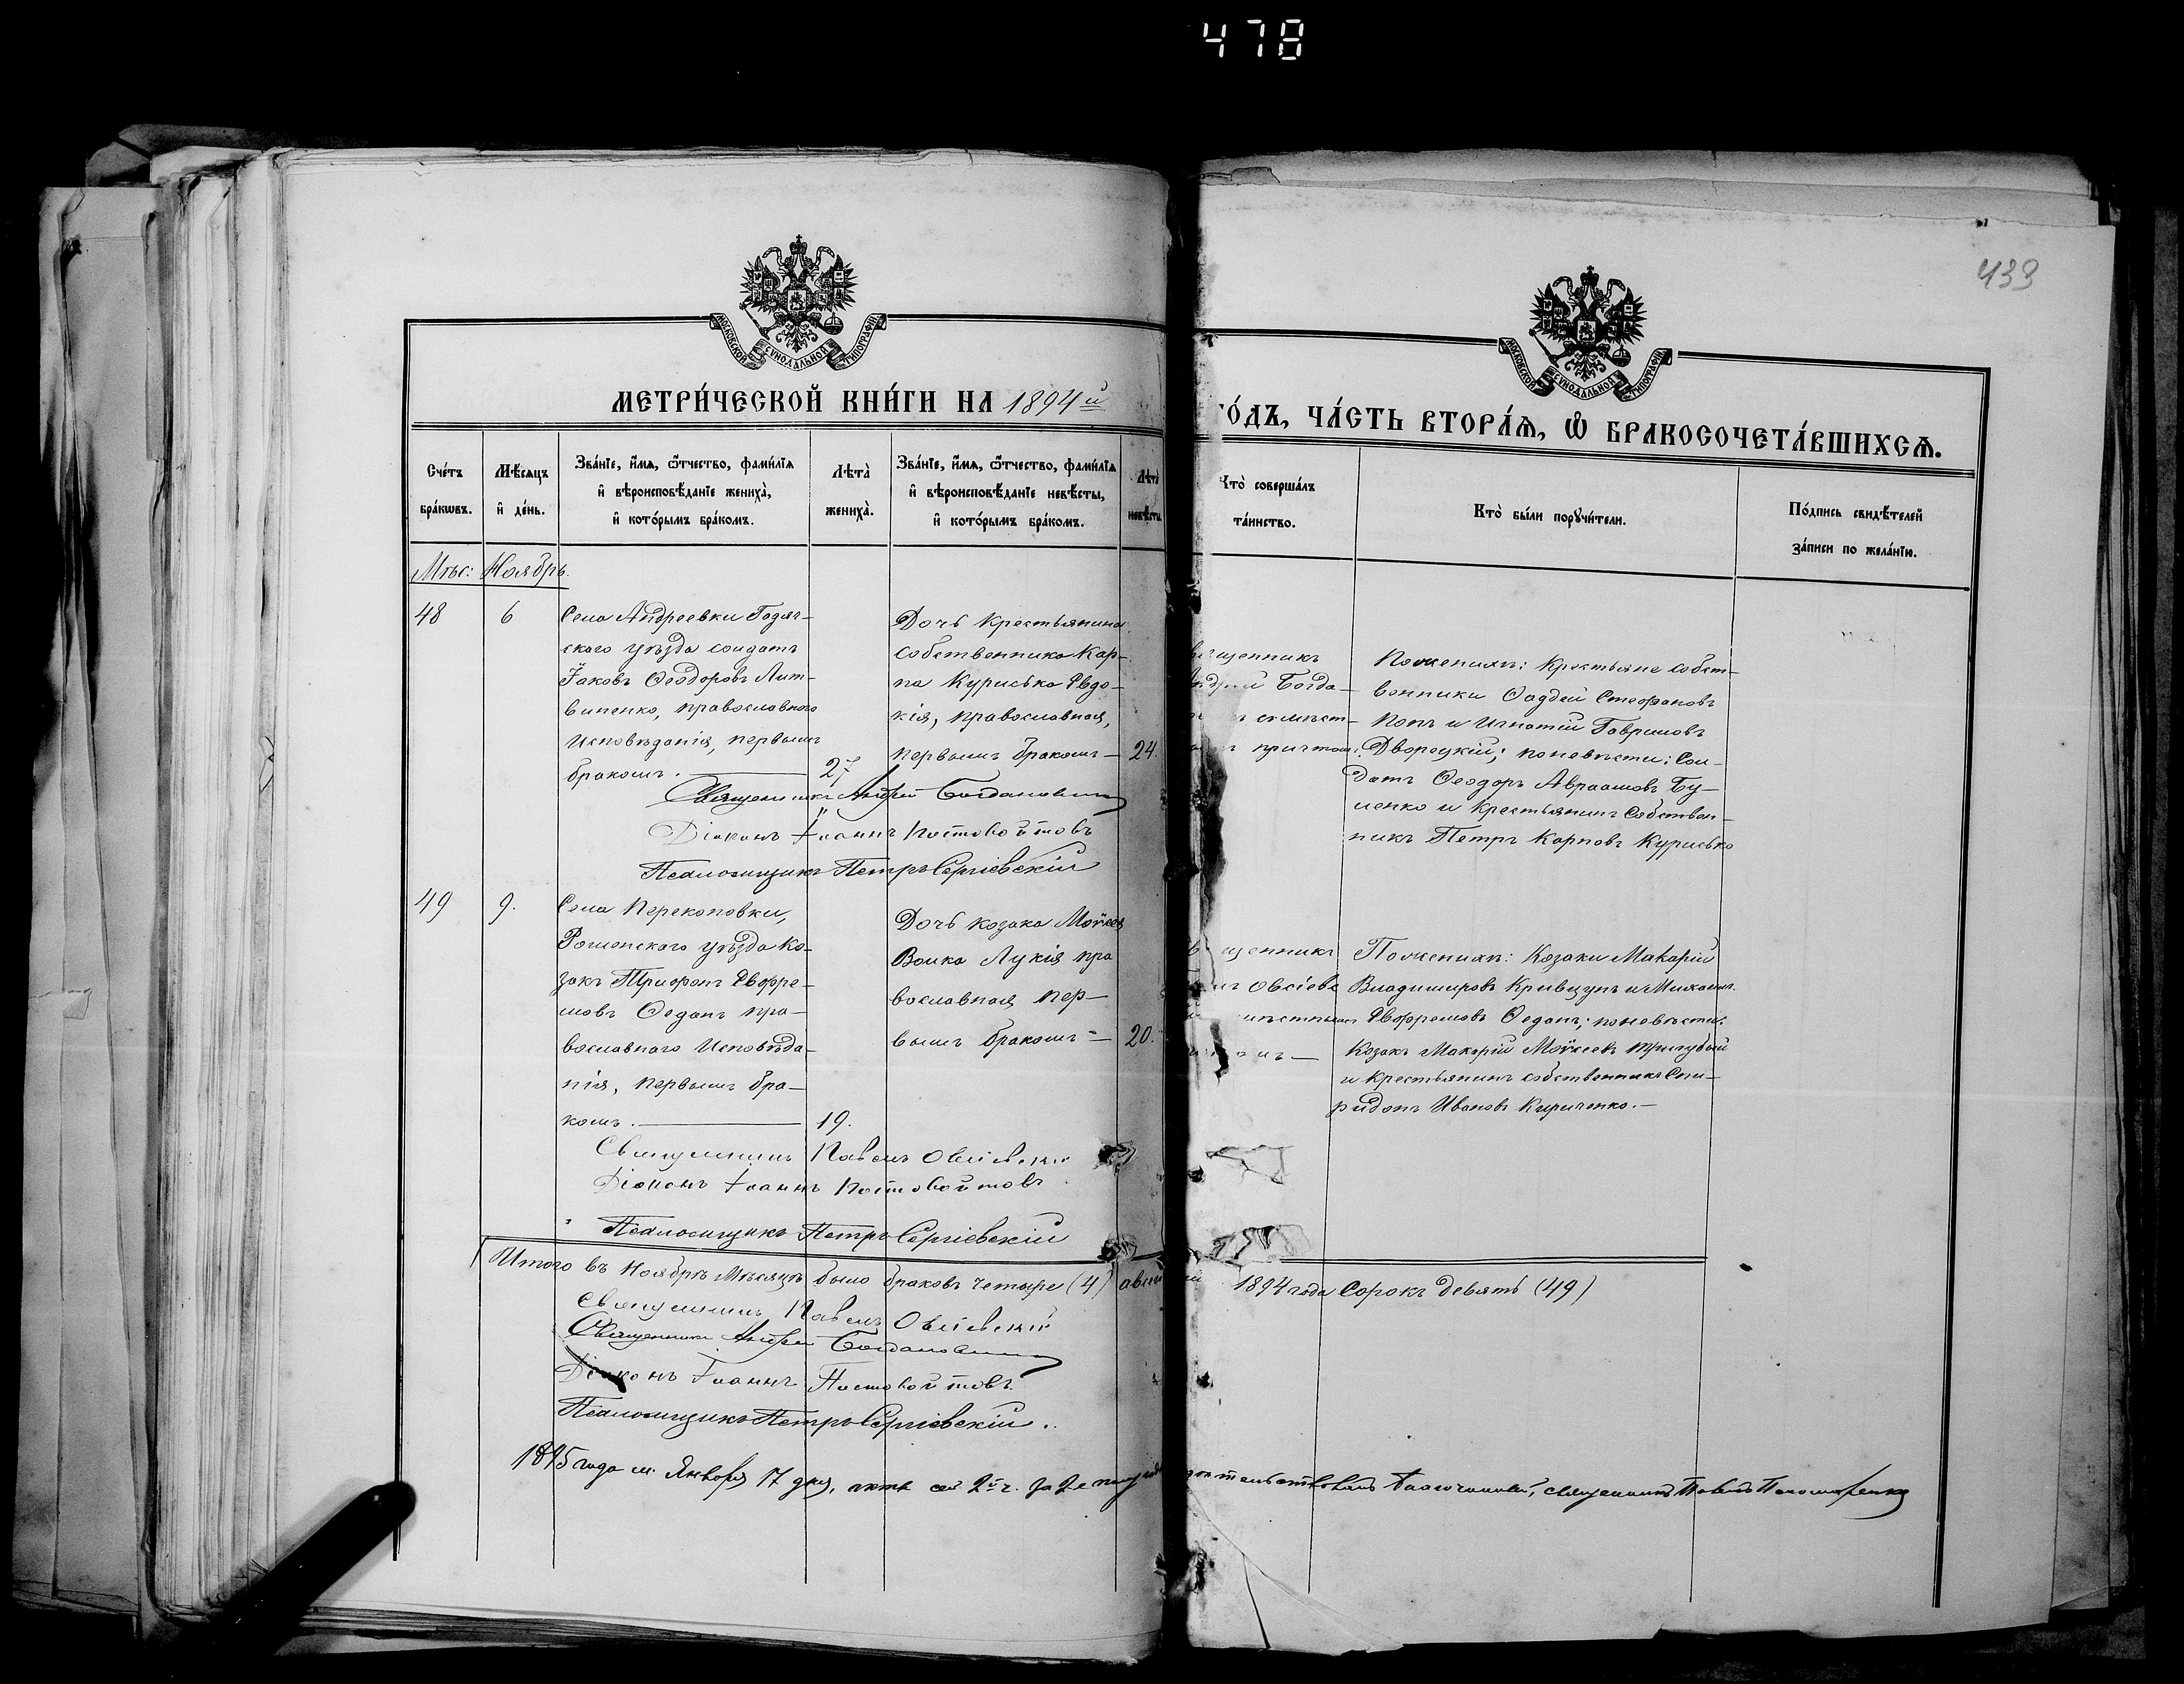 478
433
МОСКОВСКОЙ СУНОДАЛЬНОЙ ТИПОГРАФІИ
МОСКОВСКОЙ СУНОДАЛЬНОЙ ТИПОГРАФІИ
МЕТРИ́ЧЕСКОЙ КНИ́ГИ НА 1894й
ГО́ДЪ, ЧА́СТЬ ВТОРА́Ѧ, Ѽ БРАКОСОЧЕТА́ВШИХСѦ.
Сче́тъ бра́кѡвъ.
Мѣ́сѧцъ и҆ де́нь.
Зва́нїе, и҆́мѧ, ѻ҆́тчество, фами́лїѧ
и҆ вѣроисповѣ́данїе жениха̀,
и҆ кото́рымъ бра́комъ.
Лѣта̀ жениха̀.
Зва́нїе, и҆́мѧ, ѻ҆́тчество, фами́лїѧ
и҆ вѣроисповѣ́данїе невѣ́сты,
и҆ кото́рымъ бра́комъ.
Лѣта̀ невѣ́сты
Кто̀ соверша́лъ
та́инство.
Кто̀ бы́ли порꙋчи́тели.
По́дпись свидѣ́телей
за́писи по жела́нїю.
Мѣс: Ноябрь.
48
6
Села Андреевки Гадяч-
скаго уѣзда солдатъ
Іаковъ Ѳеодоровъ Лит-
виненко, православного
исповѣданія, первымъ
бракомъ.
27
Дочь Крестьянина
собственника Кар-
па Курисько Евдо-
кія, православная,
первымъ бракомъ
24.
Андрей Богда-
причтомъ.
По женихѣ: Крестьяне собст-
венники Ѳаддей Стефановъ
Попъ и Игнатій Гавриловъ
Дворецкій; по невѣсти: Сол-
датъ Ѳеодоръ Авраамовъ Бу-
ленко и Крестьянинъ Собствен-
никъ Петръ Карповъ Курисько
Священникъ Андрей Богдановичъ
Діаконъ Іоаннъ Постовойтовъ
Псаломщикъ Петръ Сергіевскій
49
9.
Села Перекоповки,
Роменскаго уѣзда Ко-
закъ Трифонъ Евфре-
мовъ Ѳеданъ пра-
вославнаго Исповѣда-
нія, первымъ бра-
комъ.
19.
Дочь козака Моѵсея
Волка Лукія пра
вославная пер-
вымъ бракомъ
20.
По женихѣ: Козаки Макарій
Владимировъ Кривцунъ и Михаилъ
Евфремовъ Ѳеданъ; по невѣсти:
Козакъ Макарій Моѵсеевъ Тригубый
и Крестьянинъ собственникъ Спи-
ридонъ Ивановъ Кириченко.
Священникъ Павелъ Овсіевскій
Діаконъ Іоаннъ Постовойтовъ
Псаломщикъ Петръ Сергіевскій
Итого въ Ноябрѣ Мѣсяцѣ было браковъ четыре (4) 1894 года Сорокъ девять (49)
Священникъ Павелъ Овсіевскій
Священникъ Андрей Богдановичъ
Діаконъ Іоаннъ Постовойтовъ.
Псаломщикъ Петръ Сергіевскій.
1895 года м. Января 17 дня, акты сей 2й ч. за 2е Благочинный, священникъ Павелъ Пономаренко